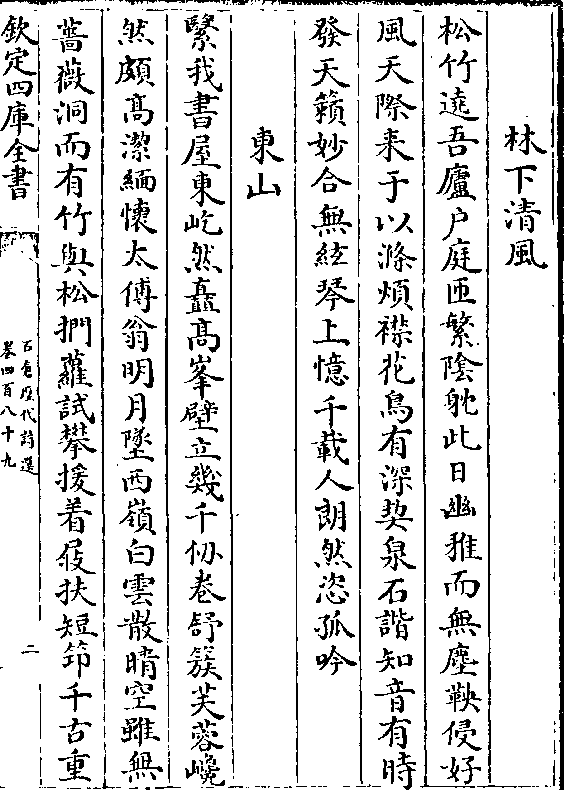 林下清風
松竹遶吾廬户庭匝繁陰躭此日幽雅而無塵鞅侵好
風天際来于以滌煩襟花鳥有深契泉石諧知音有時
發天籟妙合無絃琴上憶千載人朗然恣孤吟
東山
緊我書屋東屹然矗髙峯壁立幾千仞卷舒簇芙蓉巉
然頗髙潔緬懷太傅翁明月墜西嶺白雲散晴空雖無
薔薇洞而有竹與松捫蘿試攀援着屐扶短筇千古重
欽定四庫全書
石倉歴代詩選
卷四百八十九
二